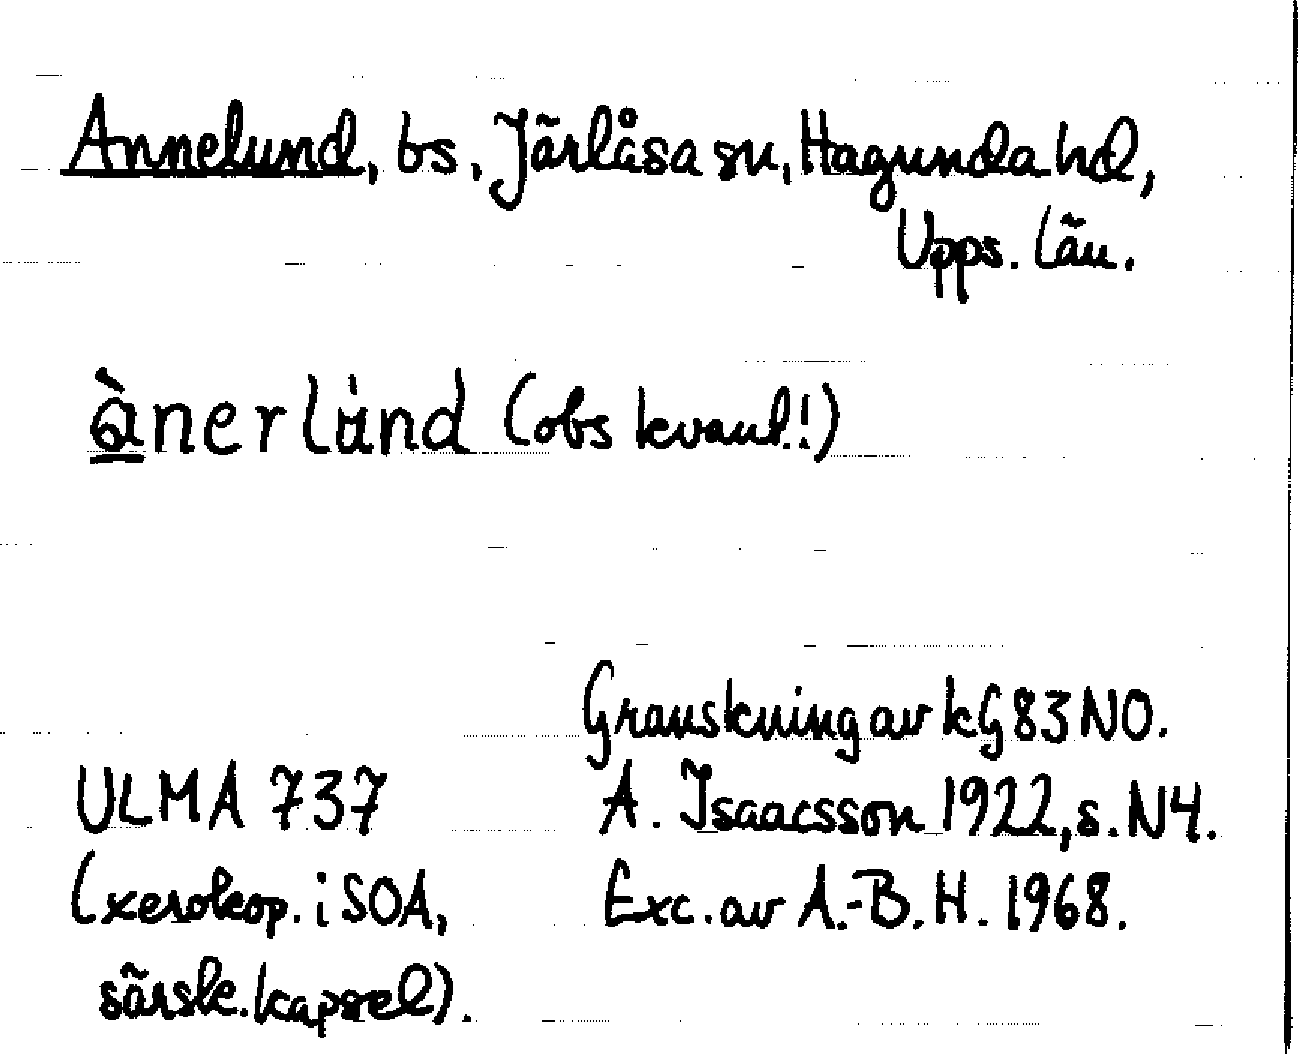 Annelund, bs, Järlåsa sn, Hagunda hd,
Upps. län.
ànerlùnd (obs kvant.!)
Granskning av kG 83 NO.
ULMA 737 A. Isaacsson 1922, s. N4.
(xerokop. i SOA, Exc. av A.-B. H. 1968.
särsk. kapsel).